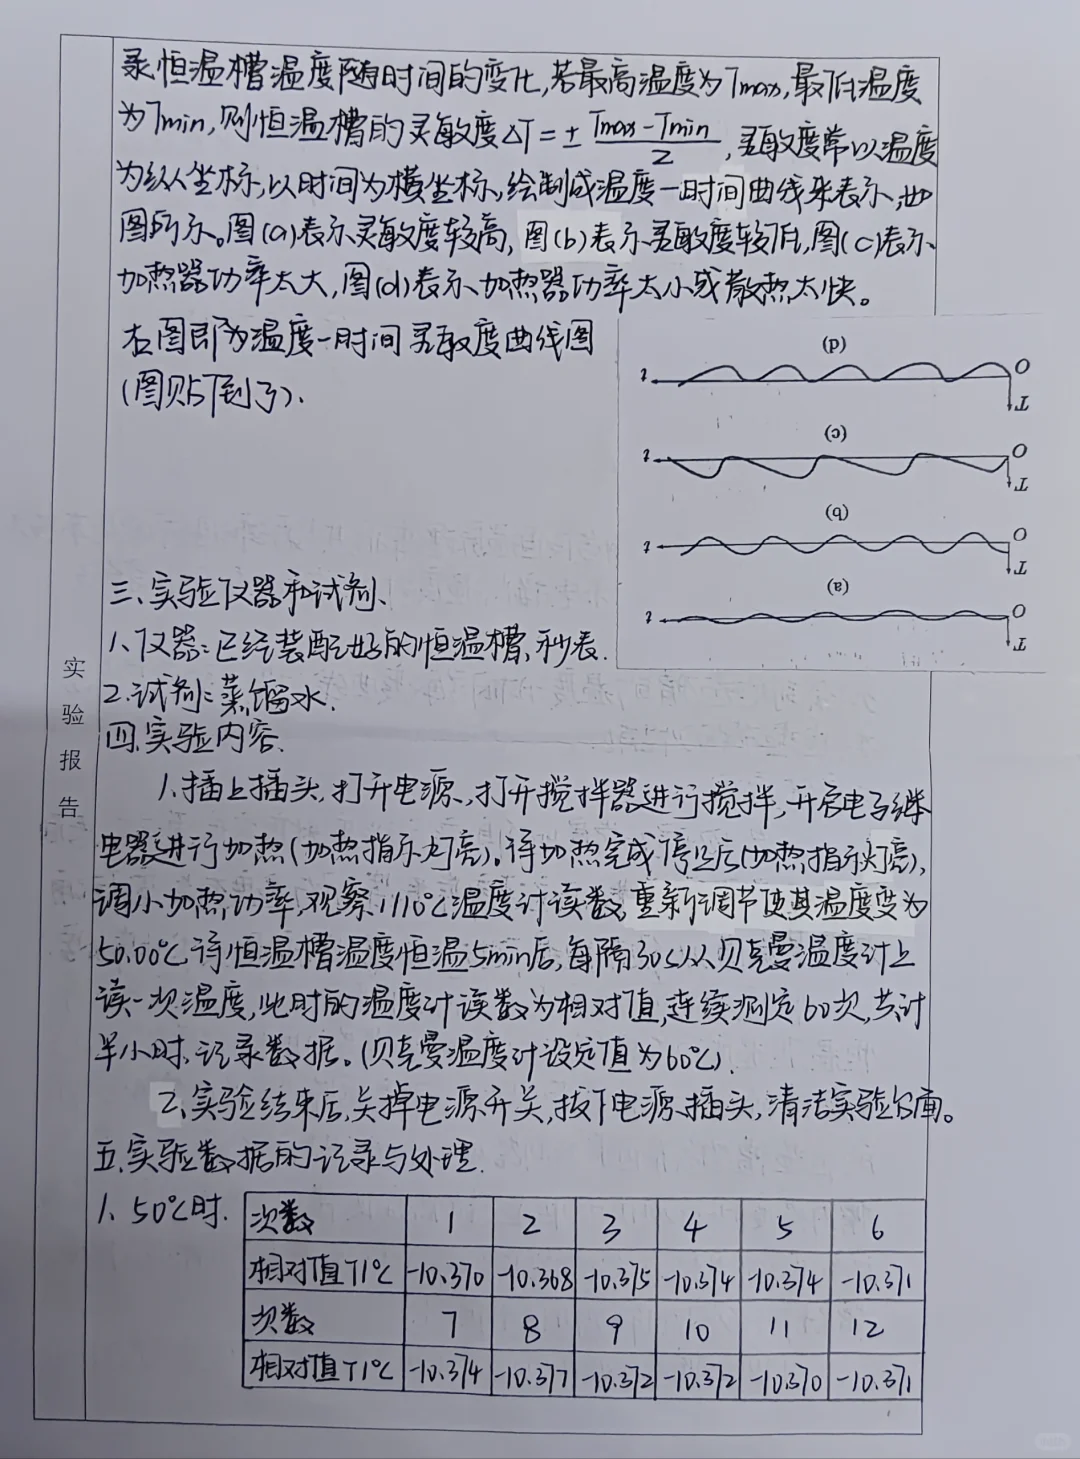 录恒温槽温度随时间的变化,若最高温度为Tmax,最低温度
为Tmin,则恒温槽的灵敏度△T=±(Tmax-Tmin)/2,灵敏度常以温度
为纵坐标,以时间为横坐标,绘制成温度一时间曲线来表示,如
图所示。图(a)表示灵敏度较高,图(b)表示灵敏度较低,图(c)表示
加热器功率太大,图(d)表示加热器功率太小或散热太快。
右图即为温度一时间灵敏度曲线图
(图贴倒了).
(d)
t O
T
(c)
t O
T
(b)
t O
T
(a)
t O
T
三、实验仪器和试剂、
1、仪器:已经装配好的恒温槽、秒表.
2.试剂:蒸馏水.
四.实验内容.
1.插上插头,打开电源,打开搅拌器进行搅拌,开启电子继
电器进行加热(加热指示灯亮)。待加热完成停止后(加热指示灯亮),
调小加热功率,观察1/10℃温度计读数,重新调节使其温度变为
50.00℃待恒温槽温度恒温5min后,每隔30s从贝克曼温度计上
读一次温度,此时的温度计读数为相对值,连续测定60次,共计
半小时、记录数据。(贝克曼温度计设定值为60℃).
2、实验结束后,关掉电源开关,拔下电源插头,清洁实验台面。
五.实验数据的记录与处理.
1、50℃时.
次数 1 2 3 4 5 6
相对值T/℃ -10.370 -10.368 -10.375 -10.374 -10.374 -10.371
次数 7 8 9 10 11 12
相对值T/℃ -10.374 -10.377 -10.372 -10.372 -10.370 -10.371
实
验
报
告